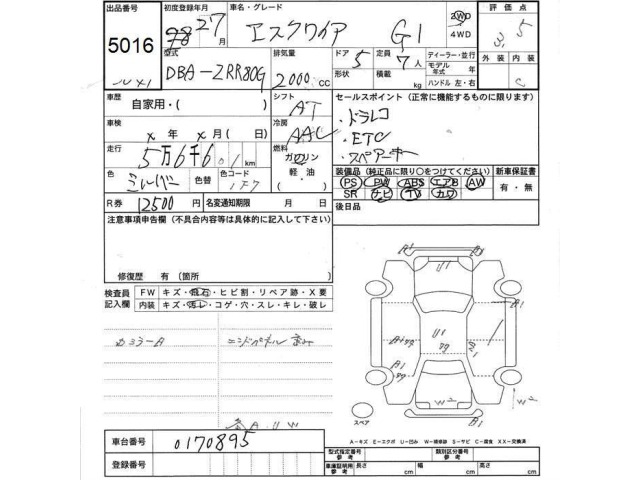 出品番号 初度登録年月 車名・グレード 評価点
5016 27 月 エスクワイア G1 2WD 4WD 3.5
型式 排気量 ドア 定員 ディーラー・並行 外装 内装
DBA-ZRR80G 2000cc 5 7人 モデル年式 年
形状 積載 kg ハンドル 左・右 C
車歴 自家用・( ) シフト AT セールスポイント(正常に機能するものに限ります)
車検 x 年 x 月( 日) 冷房 AAC ・ドラレコ
走行 5万6千6 01 km 燃料 ガソリン 軽油・ ・ETC
・スペアーキー
色 シルバー 色替 色コード 1F7 装備品(純正品に限り○をつけてください) 新車保証書
PS PW ABS エアB AW 有・無
SR ナビ TV カワ
R券 12500円 名変通知期限 月 日 後日品
注意事項申告欄(不具合内容等は具体的に記入して下さい)
修復歴 有(箇所 )
検査員記入欄 FW キズ・飛石・ヒビ割・リペア跡・X要
内装 キズ・汚レ・コゲ・穴・スレ・キレ・破レ
カミラーA エンドパネル歪み
A1 U1 A1
U1
A1
W2
B1
スペア
A-キズ E-エクボ U-凹み W-補修跡 S-サビ C-腐食 XX-交換済
車台番号 0170895
型式指定番号 参考 類別区分番号 参考
登録番号 車庫証明用 参考 長さ cm 幅 cm 高さ cm